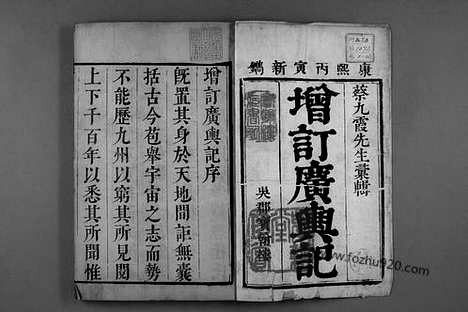 康熙丙寅新鐫
蔡九霞先生彙輯
增訂廣輿記
吳郡
增訂廣輿記序
旣置其身於天地間詎無囊
括古今苞舉宇宙之志而勢
不能歷九州以窮其所見閱
上下千百年以悉其所聞惟
www.fozhu920.com